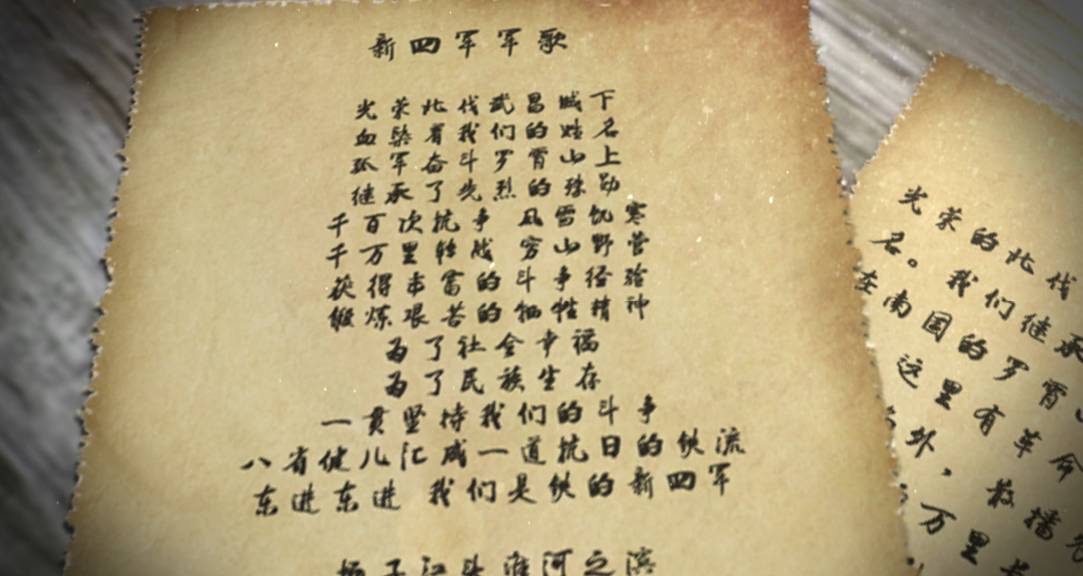 新四军军歌
光荣北伐武昌城下
血染着我们的姓名
孤军奋斗罗霄山上
继承了先烈的殊勋
千百次抗争 风雪饥寒
千万里转战 穷山野营
获得丰富的斗争经验
锻炼艰苦的牺牲精神
为了社会幸福
为了民族生存
一贯坚持我们的斗争
八省健儿汇成一道抗日的铁流
东进东进 我们是铁的新四军
扬子江头淮河之滨
光荣的北伐
名。我们继承
在南国的罗霄山
这里有革命
外，散播先
万里长